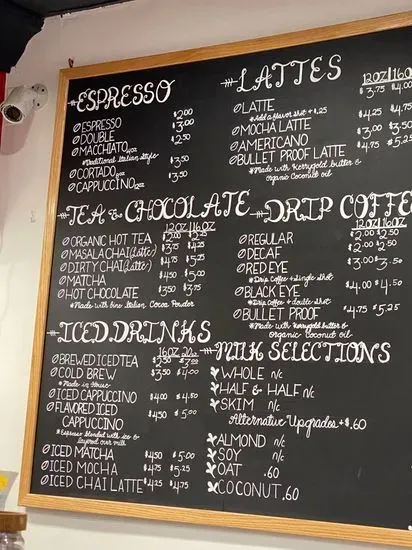 ESPRESSO
ESPRESSO $2.00
DOUBLE $3.00
MACCHIATO 4oz $2.50
*Traditional Italian Style
CORTADO 4oz $3.50
CAPPUCCINO 12oz $3.50
LATTES
12OZ|16O
LATTE $3.75 $4.00
*Add a flavor shot +$.25
MOCHA LATTE $4.25 $4.75
AMERICANO $3.00 $3.50
BULLET PROOF LATTE $4.75 $5.25
*Made with Kerrygold butter &
organic Coconut oil
TEA & CHOCOLATE
12OZ|16OZ
ORGANIC HOT TEA $2.00 $2.25
MASALA CHAI (Latte) $3.75 $4.25
DIRTY CHAI (Latte) $4.25
MATCHA $4.50 $5.00
HOT CHOCOLATE $3.50 $3.75
*Made with fine Italian Cocoa Powder
DRIP COFFE
12OZ|16OZ
REGULAR $2.00 $2.50
DECAF $2.00 $2.50
RED EYE $3.00 $3.50
*Drip Coffee + Single Shot
BLACK EYE $4.00 $4.50
*Drip Coffee + double Shot
BULLET PROOF $4.75 $5.25
*Made with Kerrygold butter &
organic Coconut oil
ICED DRINKS
16OZ 20oz
BREWED ICED TEA $2.50 $3.00
COLD BREW $3.50 $4.00
*Made in House
ICED CAPPUCCINO $4.00 $4.50
FLAVORED ICED
CAPPUCCINO $4.50 $5.00
*Espresso blended with ice &
layered over milk
ICED MATCHA $4.50 $5.00
ICED MOCHA $4.75 $5.25
ICED CHAI LATTE $4.25 $4.75
MILK SELECTIONS
WHOLE n/c
HALF & HALF n/c
SKIM n/c
Alternative Upgrades +$.60
ALMOND n/c
SOY n/c
OAT .60
COCONUT .60